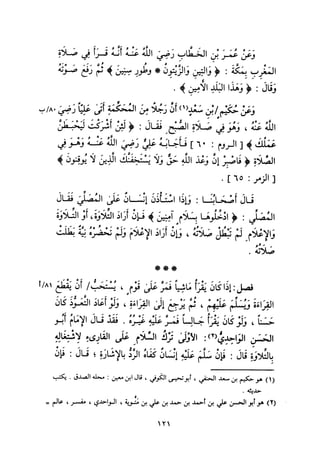 وَعَنْ عُمَرَ بْنِ الْخَطَّابِ رَضِيَ اللَّهُ عَنْهُ أَنَّهُ قَرَأَ فِي صَلَاةِ
المَغْرِبِ بِمَكَّةَ : ﴿ وَالتِينِ وَالزَّيْتُونِ * وطُورِ سِنِينَ ﴾ ثُمَّ رَفَعَ صَوْتَهُ
وَقَالَ : ﴿ وَهٰذَا البَلَدِ الأَمِينِ ﴾ .
وَعَنْ حُكَيْمِ /بْنِ سَعْدٍ(١) أَنَّ رَجُلاً مِنَ المُحَكِّمَةِ أَتَى عَلِيَّاً رَضِيَ ٨٠/ب
اللَّهُ عَنْهُ ، وَهُوَ فِي صَلَاةِ الصُّبْحِ فَقَالَ : ﴿ لَئِنْ أَشْرَكْتَ لَيَحْبَطَنَّ
عَمَلُكَ ﴾ [ الروم : ٦٠ ] فَأَجَابَهُ عَلِيٌّ رَضِيَ اللَّهُ عَنْهُ وَهُوَ فِي
الصَّلَاةِ ﴿ فَاصْبِرْ إِنَّ وَعْدَ اللَّهِ حَقٌّ وَلَا يَسْتَخِفَّنَّكَ الَّذِينَ لَا يُوقِنُونَ ﴾
[ الزمر : ٦٥ ] .
قَالَ أَصْحَابُنَا : وَإِذَا اسْتَأْذَنَ إِنْسَانٌ عَلَى المُصَلِّي فَقَالَ
المُصَلِّي : ﴿ ادْخُلُوهَا بِسَلَامٍ آمِنِينَ ﴾ فَإِنْ أَرَادَ التِّلَاوَةَ، أَوْ التِّلَاوَةَ
وَالإِعْلَامَ لَمْ تَبْطُلْ صَلَاتُهُ ، وَإِنْ أَرَادَ الإِعْلَامَ وَلَمْ تَحْضُرْهُ نِيَّةٌ بَطَلَتْ
صَلَاتُهُ .
***
فصل : إِذَا كَانَ يَقْرَأُ مَاشِياً فَمَرَّ عَلَى قَوْمٍ ، يُسْتَحَبُّ/ أَنْ يَقْطَعَ ٨١/أ
القِرَاءَةَ وَيُسَلِّمَ عَلَيْهِمْ ، ثُمَّ يَرْجِعَ إِلَى القِرَاءَةِ ، وَلَوْ أَعَادَ التَّعَوُّذَ كَانَ
حَسَناً ، وَلَوْ كَانَ يَقْرَأُ جَالِساً فَمَرَّ عَلَيْهِ غَيْرُهُ . فَقَدْ قَالَ الإِمَامُ أَبُو
الحَسَنِ الوَاحِدِيُّ(٢) : الأَوْلَى تَرْكُ السَّلَامِ عَلَى القَارِىءِ لاشْتِغَالِهِ
بِالتِّلَاوَةِ قَالَ : فَإِنْ سَلَّمَ عَلَيْهِ إِنْسَانٌ كَفَاهُ الرَّدُّ بِالإِشَارَةِ ؛ قَالَ : فَإِنْ
(١) هو حكيم بن سعد الحنفي ، أبو تحيى الكوفي ، قال ابن معين : محله الصدق . يكتب
حديثه .
(٢) هو أبو الحسن علي بن أحمد بن محمد بن علي بن متُّوية ، الواحدي ، مفسر ، عالم =
١٢١